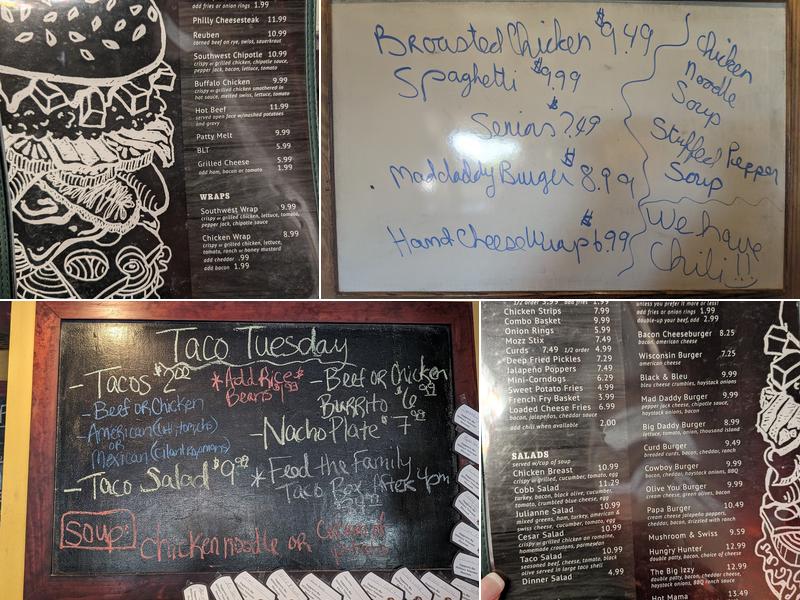 add fries or onion rings 1.99
Philly Cheesesteak 11.99
Reuben 10.99
corned beef on rye, swiss, sauerkraut
Southwest Chipotle 10.99
crispy or grilled chicken, chipotle sauce,
pepper jack, bacon, lettuce, tomato
Buffalo Chicken 9.99
crispy or grilled chicken smothered in
hot sauce, melted swiss, lettuce, tomato
Hot Beef 11.99
served open face w/mashed potatoes
and gravy
Patty Melt 9.99
BLT 5.99
Grilled Cheese 5.99
add ham, bacon or tomato 1.99
WRAPS
Southwest Wrap 9.99
crispy or grilled chicken, lettuce, tomato,
pepper jack, chipotle sauce
Chicken Wrap 8.99
crispy or grilled chicken, lettuce,
tomato, ranch or honey mustard
add cheddar .99
add bacon 1.99
Broasted Chicken $9.49
Spaghetti $9.99
Senias $7.49
Maddaddy Burger $8.99
Ham & Cheese Wrap $6.99
Chicken
noodle
Soup
Stuffed Pepper
Soup
We have
Chili!!
Taco Tuesday
- Tacos $2.00
- Beef or Chicken
- American
or
Mexican
- Taco Salad $9.99
*Add Rice &
Beans
- Beef or Chicken
Burrito $6.99
- Nacho Plate $7.99
* Feed the Family
Taco Box After 4pm
Soup
Chicken noodle or
1/2 order 5.99 add fries 1.99
Chicken Strips 7.99
Combo Basket 9.99
Onion Rings 5.99
Mozz Stix 7.49
Curds 7.49 1/2 order 4.99
Deep Fried Pickles 7.29
Jalapeño Poppers 7.49
Mini-Corndogs 6.29
Sweet Potato Fries 4.99
French Fry Basket 3.99
Loaded Cheese Fries 6.99
bacon, jalapeños, cheddar sauce
add chili when available 2.00
SALADS
served w/cup of soup
Chicken Breast 10.99
crispy or grilled, cucumber, tomato, egg
Cobb Salad 11.29
turkey, bacon, black olive, cucumber,
tomato, crumbled blue cheese, egg
Julianne Salad 10.99
mixed greens, ham, turkey, american &
swiss cheese, cucumber, tomato, egg
Cesar Salad 10.99
crispy or grilled chicken on romaine,
homemade croutons, parmesan
Taco Salad 10.99
seasoned beef, cheese, tomato, black
olive served in large taco shell
Dinner Salad 4.99
unless you prefer it more or less!
add fries or onion rings 1.99
double-up your beef, add 2.99
Bacon Cheeseburger 8.25
bacon, american cheese
Wisconsin Burger 7.25
american cheese
Black & Bleu 9.99
bleu cheese crumbles, haystack onions
Mad Daddy Burger 9.99
pepper jack cheese, chipotle sauce,
haystack onions, bacon
Big Daddy Burger 8.99
lettuce, tomato, onion, thousand island
Curd Burger 9.49
breaded curds, bacon, cheddar, ranch
Cowboy Burger 9.99
bacon, cheddar, haystack onions, BBQ
Olive You Burger 9.99
cream cheese, green olives, bacon
Papa Burger 10.49
cream cheese jalapeño poppers,
cheddar, bacon, drizzled with ranch
Mushroom & Swiss 9.59
Hungry Hunter 12.99
double patty, bacon, choice of cheese
The Big Izzy 12.99
double patty, bacon, cheddar cheese,
haystack onions, BBQ ranch sauce
Hot Mama 13.49